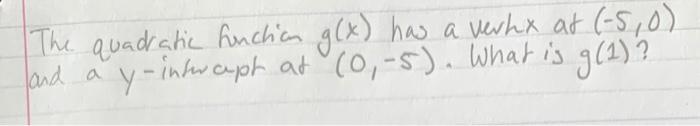 The quadratic function g(x) has a vertex at (-5,0)
and a y-intercept at (0,-5). What is g(1)?